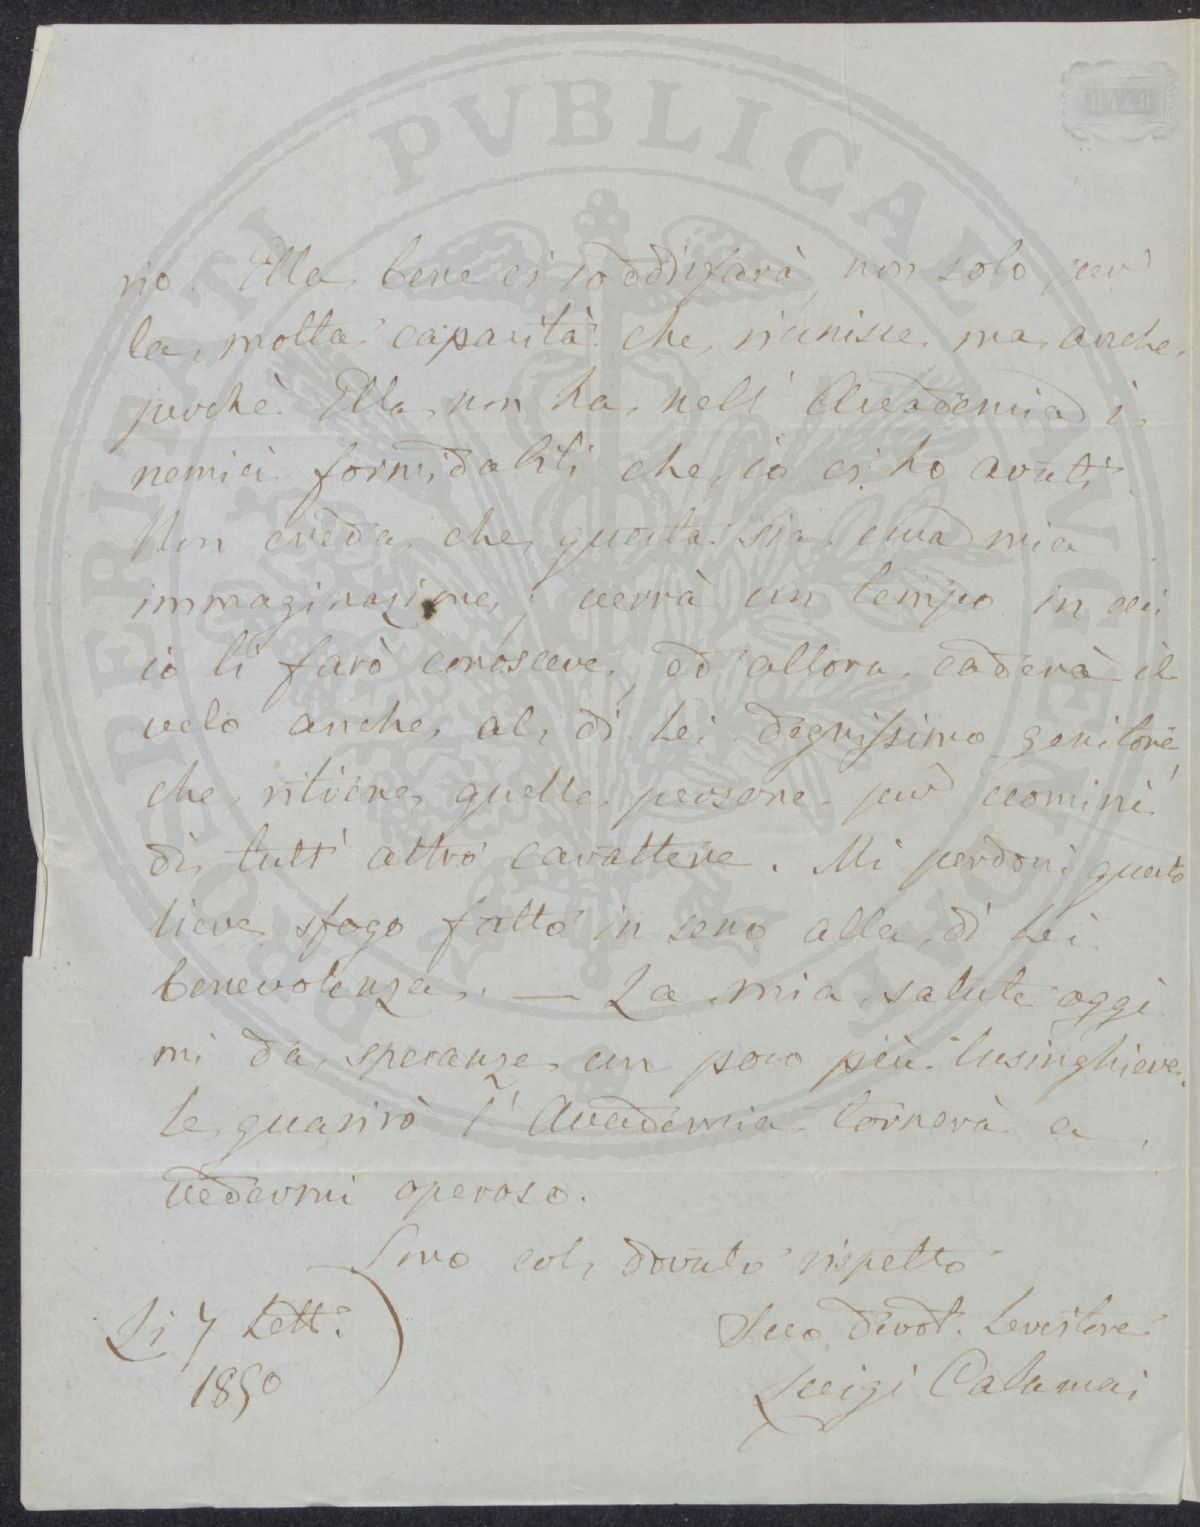 PROSPERITATI PVBLICAE AVGENDAE
BATH
rio. Ella bene ci soddisfarà, non solo per
la molta capacità che riunisce ma anche
perchè Ella non ha nell' Accademia i
nemici formidabili che io ci ho avuti.
Non creda che questa sia una mia
immaginazione; verrà un tempo in cui
io li farò conoscere, ed allora caderà il
velo anche al di Lei degnissimo genitore
che ritiene quelle persone per uomini
di tutt' altro carattere. Mi perdoni questo
lieve sfogo fatto in seno alla di Lei
benevolenza. — La mia salute oggi
mi da speranze un poco più lusinghiere.
Se guarirò l' Accademia tornerà a
vedermi operoso.
Sono col dovuto rispetto
Li 7 Sett.
1850
Suo devot. Servitore
Luigi Calamai